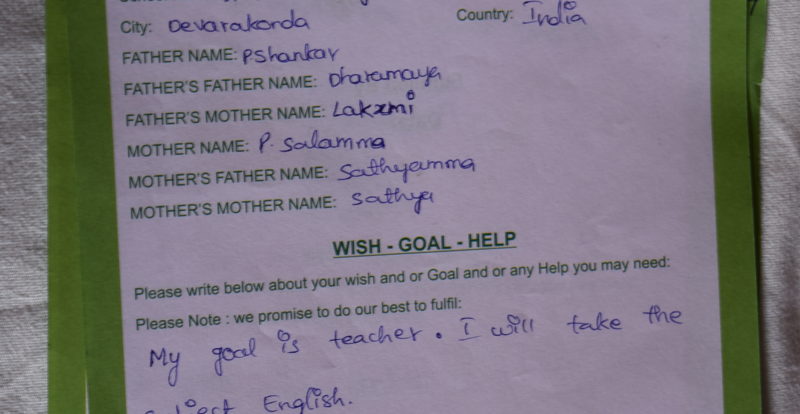 City: Devarakonda Country: India
FATHER NAME: PShankar
FATHER'S FATHER NAME: Dharamaya
FATHER'S MOTHER NAME: Lakxmi
MOTHER NAME: P. Salamma
MOTHER'S FATHER NAME: Sathyamma
MOTHER'S MOTHER NAME: Sathya
WISH - GOAL - HELP
Please write below about your wish and or Goal and or any Help you may need:
Please Note : we promise to do our best to fulfil:
My goal is teacher. I will take the
English.